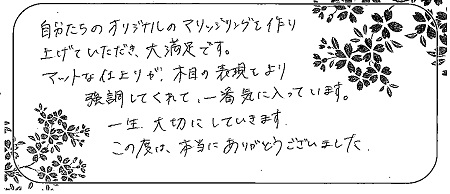 自分たちのオリジナルのマリッジリングを作り
上げていただき、大満足です。
マットな仕上りが、木目の表現をより
強調してくれて、一番気に入っています。
一生、大切にしていきます。
この度は、本当にありがとうございました。